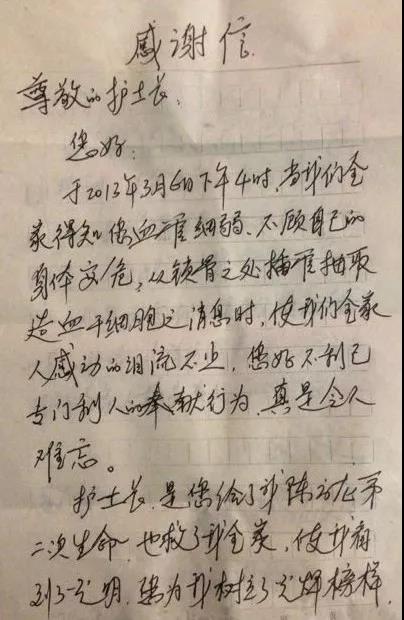 感谢信
尊敬的护士长:
您好:
于2013年3月6日下午4时,当我们全
家得知您血管细弱、不顾自己的
身体安危,从锁骨之处插管抽取
造血干细胞之消息时,使我们全家
人感动的泪流不止,您好不利己
专门利人的奉献行为,真是令人
难忘。
护士长,是您给了我陈 第
二次生命,也救了我全家,使我看
到了光明,您为我树立了光辉榜样,